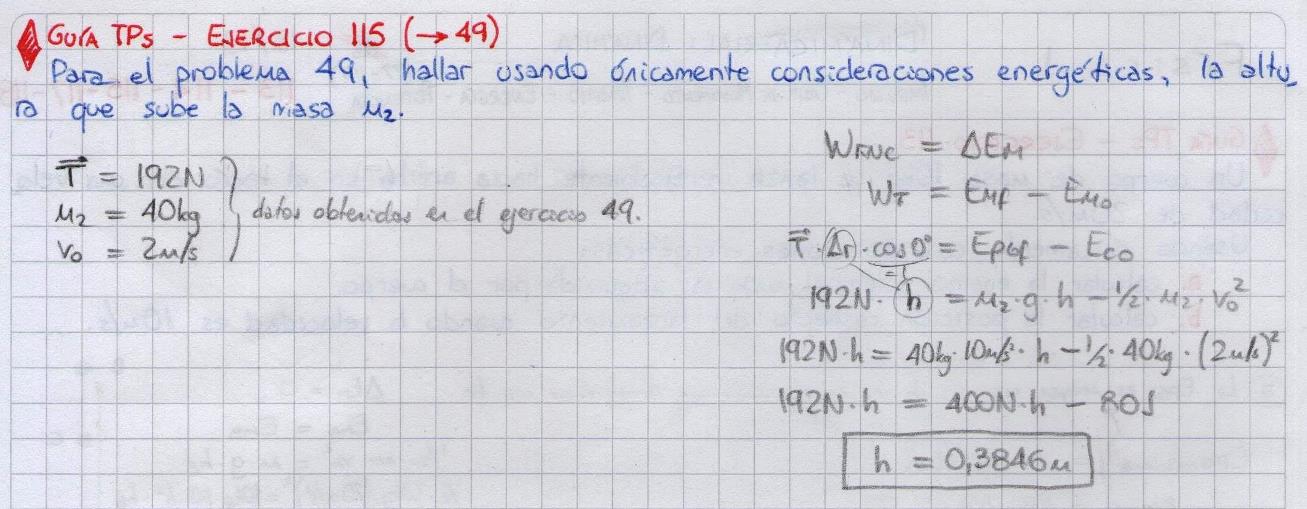 GUÍA TPs - EJERCICIO 115 (→ 49)
Para el problema 49, hallar usando únicamente consideraciones energéticas, la altu_
ra que sube la masa m₂.
T⃗ = 192N
m₂ = 40kg
v₀ = 2m/s
datos obtenidos en el ejercicio 49.
W_FNC = ΔE_M
W_T = E_Mf - E_M0
T⃗ · Δr · cos 0° = E_PGf - E_C0
=1
192N · h = m₂ · g · h - 1/2 · m₂ · v₀²
192N·h = 40kg · 10m/s² · h - 1/2 · 40kg · (2m/s)²
192N·h = 400N·h - 80J
h = 0,3846m